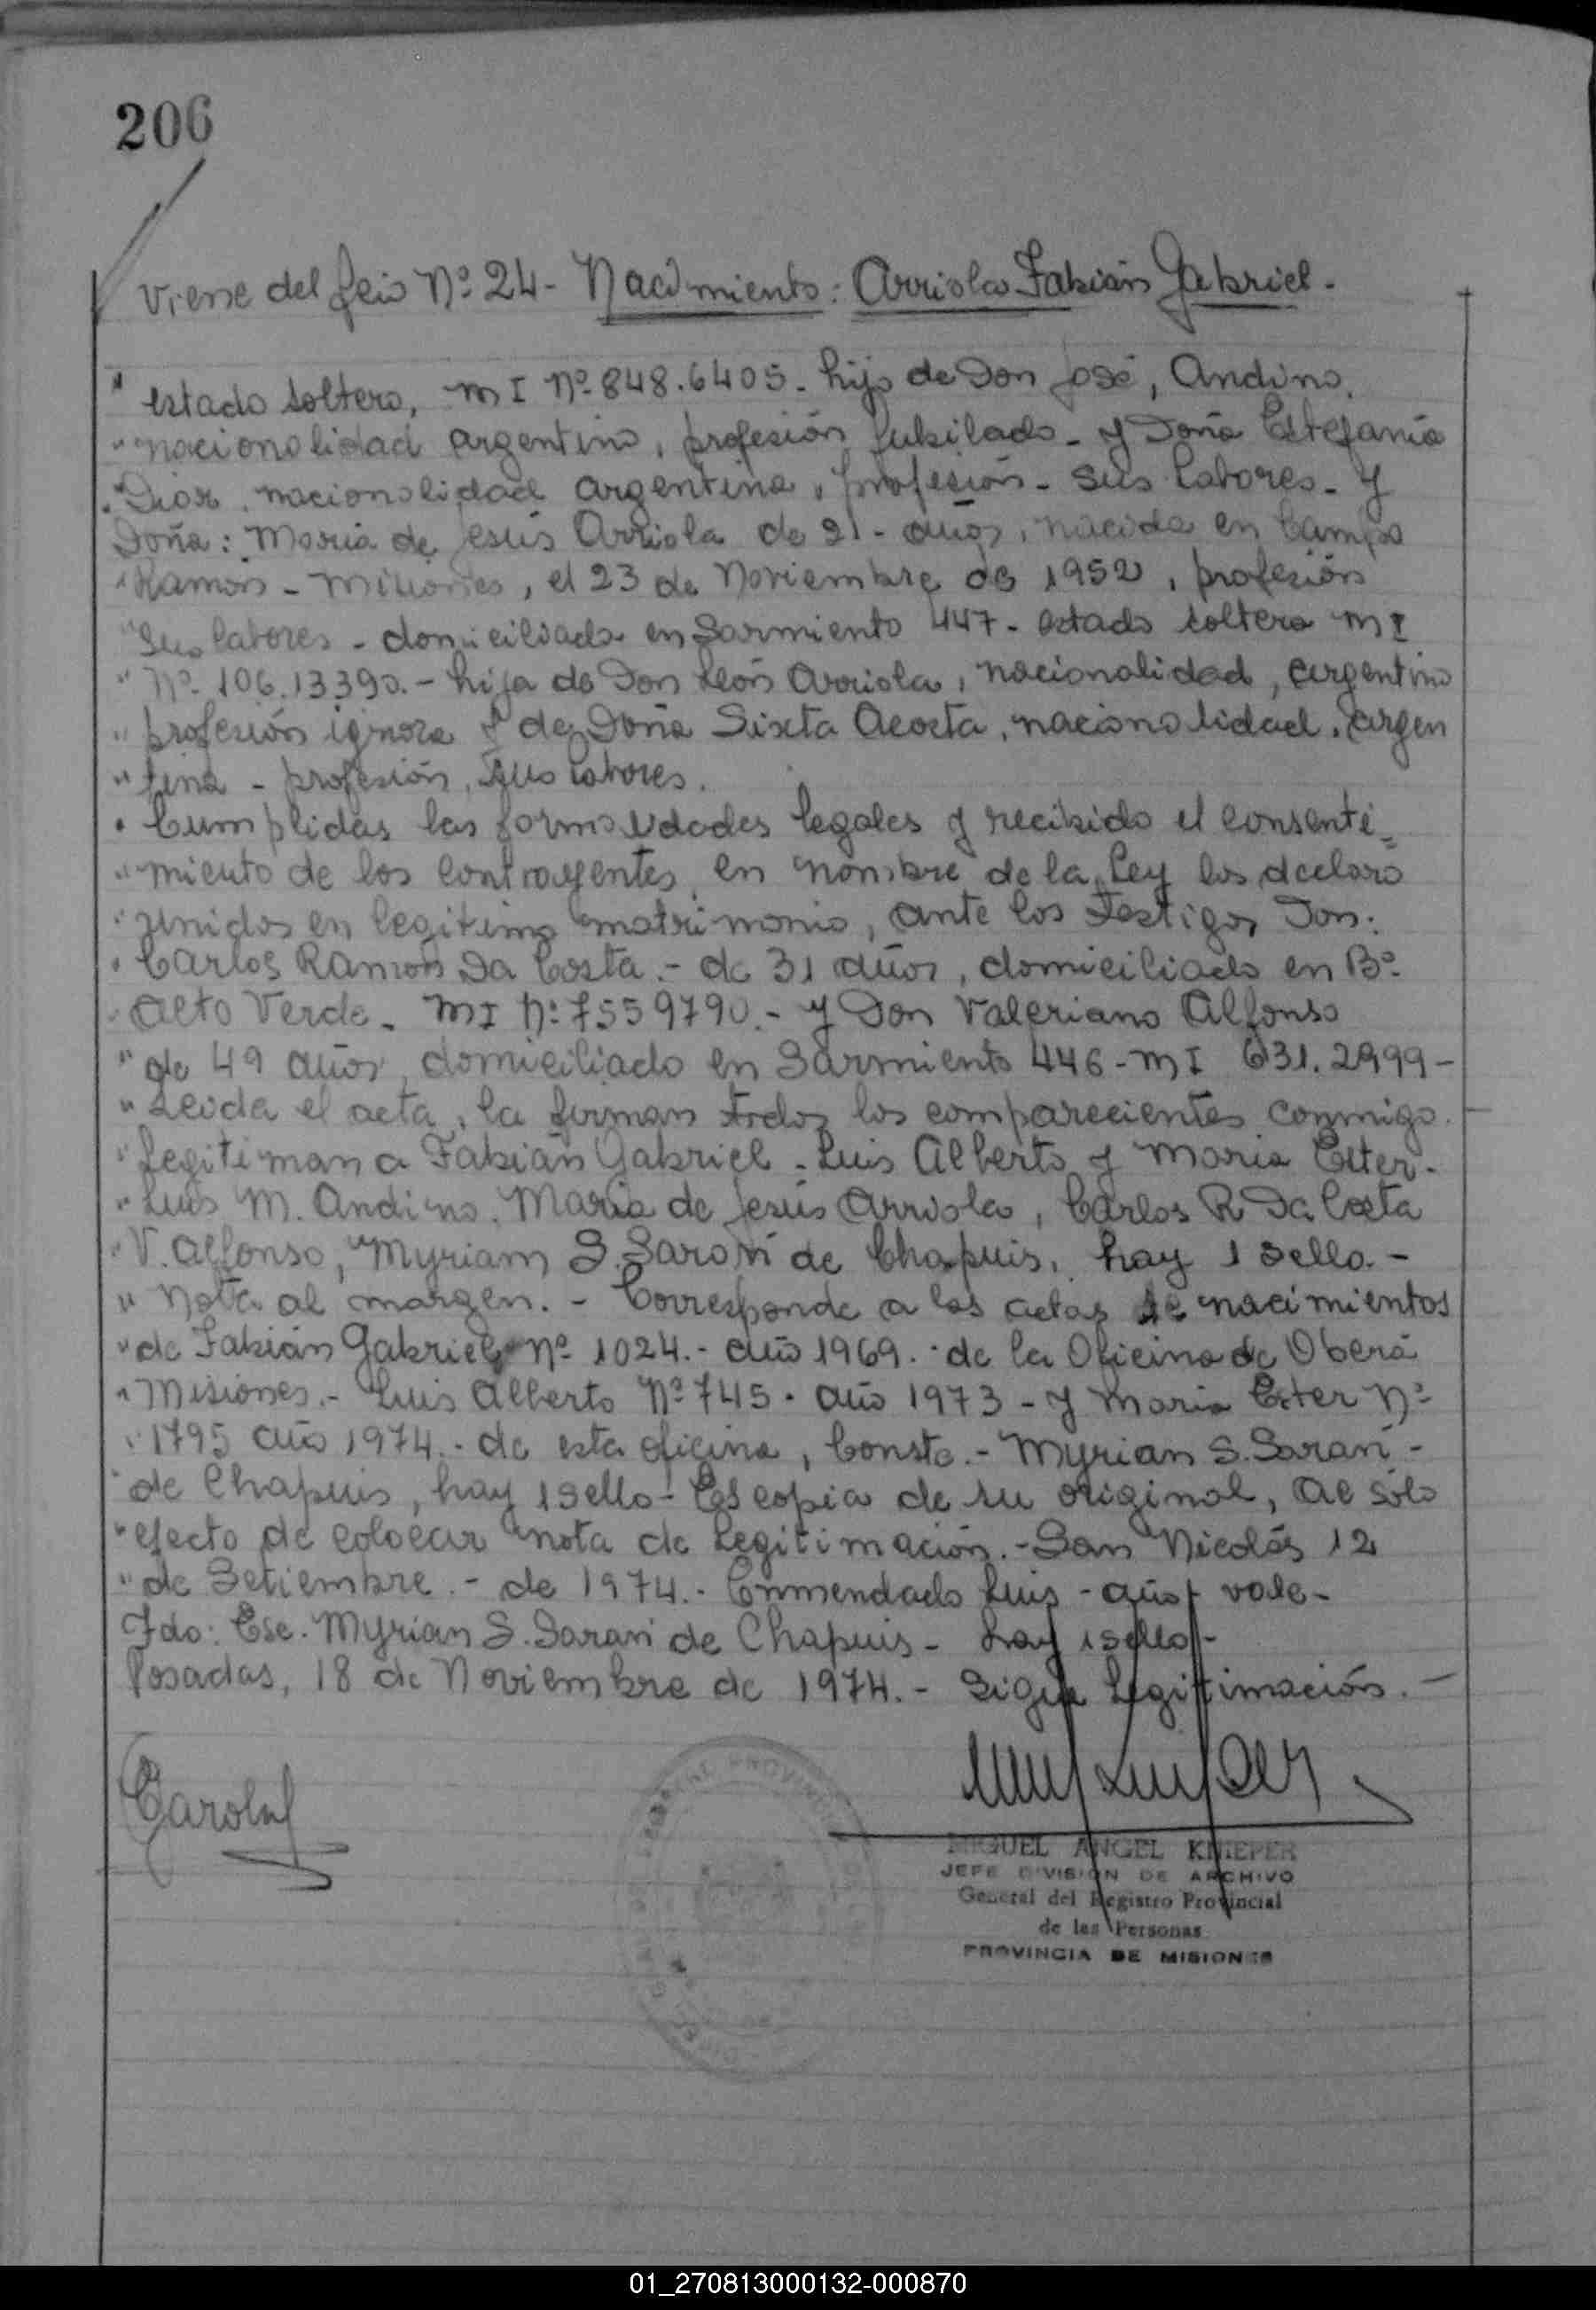 206
Viene del feio Nº 24- Nacimiento: Arriola Fabián Gabriel.-
" estado soltero, MI Nº 848.6405- hijo de Don José, Andino,
" nacionalidad argentino, profesión jubilado- y Doña Estefanía
" nacionalidad argentina, profesión- sus labores- y
Doña: María de Jesús Arriola de 21- años, nacida en Campo
" Ramón - Misiones, el 23 de Noviembre de 1952, profesión
" sus labores- domiciliada en Sarmiento 447- estado soltera MI
" Nº 106.13390.- hija de Don León Arriola, nacionalidad, argentino
" profesión ignora y de Doña Sixta Acosta, nacionalidad, argen
" tina - profesión, sus labores.
" Cumplidas las formalidades legales y recibido el consenti=
" miento de los contrayentes, en nombre de la Ley los declaro
" unidos en legitimo matrimonio, ante los Testigos Don:
" Carlos Ramón Da Costa.- de 31 años, domiciliado en Bº
" Alto Verde- MI Nº 7559790.- y Don Valeriano Alfonso
" de 49 años, domiciliado en Sarmiento 446-MI 631.2999-
" Leida el acta, la firman todos los comparecientes conmigo.
" Legitiman a Fabián Gabriel- Luis Alberto y Maria Ester-
" Luis M. Andino, Maria de Jesús Arriola, Carlos R Da Costa
" V. Alfonso, Myriam S. Saraví de Chapuis, hay 1 sello.-
" Nota al margen.- Corresponde a las actas de nacimientos
" de Fabián Gabriel Nº 1024.- año 1969.- de la Oficina de Oberá
" Misiones.- Luis Alberto Nº 745- año 1973- y Maria Ester Nº
" 1795 año 1974.- de esta oficina, Conste.- Myrian S. Saraví-
" de Chapuis, hay 1 sello- Es copia de su original, al sólo
" efecto de colocar nota de Legitimación.- San Nicolás 12
" de Setiembre.- de 1974.- Enmendado Luis - año- vale-
Fdo: Esc. Myrian S. Saraví de Chapuis- hay 1 sello-
Posadas, 18 de Noviembre de 1974.- Sigue Legitimación.-
MIGUEL ANGEL KNIEPER
JEFE DIVISION DE ARCHIVO
General del Registro Provincial
de las Personas
PROVINCIA DE MISIONES
01_270813000132-000870